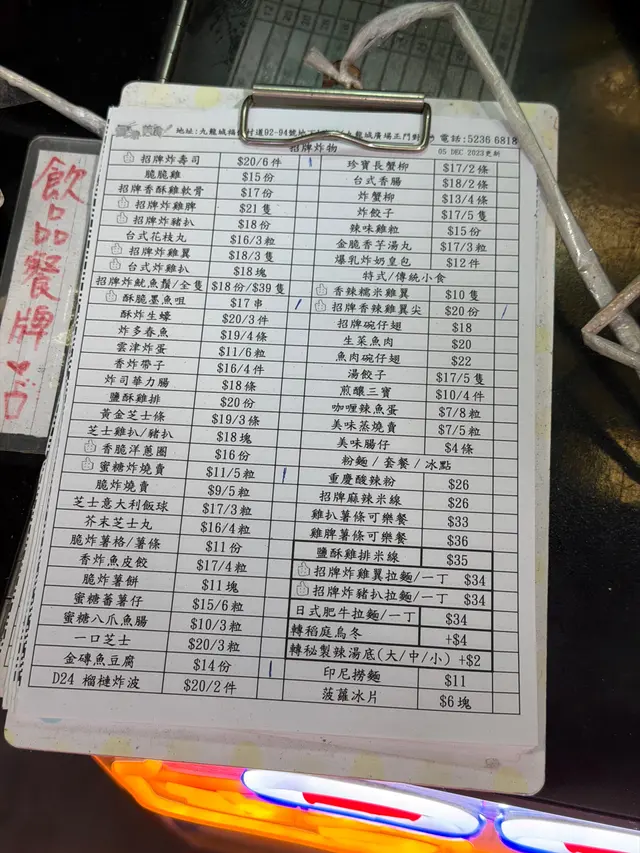 地址:九龍城福佬村道92-94號地 九龍城廣場正門對 電話:5236 6818
招牌炸物 05 DEC 2023更新
飲品餐牌
招牌炸壽司 $20/6件
脆脆雞 $15份
招牌香酥雞軟骨 $17份
招牌炸雞脾 $21隻
招牌炸豬扒 $18份
台式花枝丸 $16/3粒
招牌炸雞翼 $18/3隻
台式炸雞扒 $18塊
招牌炸魷魚鬚/全隻 $18份/$39隻
酥脆墨魚咀 $17串
酥炸生蠔 $20/3件
炸多春魚 $19/4條
雲津炸蛋 $11/6粒
香炸帶子 $16/4件
炸司華力腸 $18條
鹽酥雞排 $20份
黃金芝士條 $19/3條
芝士雞扒/豬扒 $18塊
香脆洋蔥圈 $16份
蜜糖炸燒賣 $11/5粒
脆炸燒賣 $9/5粒
芝士意大利飯球 $17/3粒
芥末芝士丸 $16/4粒
脆炸薯格/薯條 $11份
香炸魚皮餃 $17/4粒
脆炸薯餅 $11塊
蜜糖蕃薯仔 $15/6粒
蜜糖八爪魚腸 $10/3粒
一口芝士 $20/3粒
金磚魚豆腐 $14份
D24 榴槤炸波 $20/2件
珍寶長蟹柳 $17/2條
台式香腸 $18/2條
炸蟹柳 $13/4條
炸餃子 $17/5隻
辣味雞粒 $15份
金脆香芋湯丸 $17/3粒
爆乳炸奶皇包 $12件
特式/傳統小食
香辣糯米雞翼 $10隻
招牌香辣雞翼尖 $20份
招牌碗仔翅 $18
生菜魚肉 $20
魚肉碗仔翅 $22
湯餃子 $17/5隻
煎釀三寶 $10/4件
咖喱辣魚蛋 $7/8粒
美味蒸燒賣 $7/5粒
美味腸仔 $4條
粉麵/套餐/冰點
重慶酸辣粉 $26
招牌麻辣米線 $26
雞扒薯條可樂餐 $33
雞脾薯條可樂餐 $36
鹽酥雞排米線 $35
招牌炸雞翼拉麵/一丁 $34
招牌炸豬扒拉麵/一丁 $34
日式肥牛拉麵/一丁 $34
轉稻庭烏冬 +$4
轉秘製辣湯底(大/中/小) +$2
印尼撈麵 $11
菠蘿冰片 $6塊